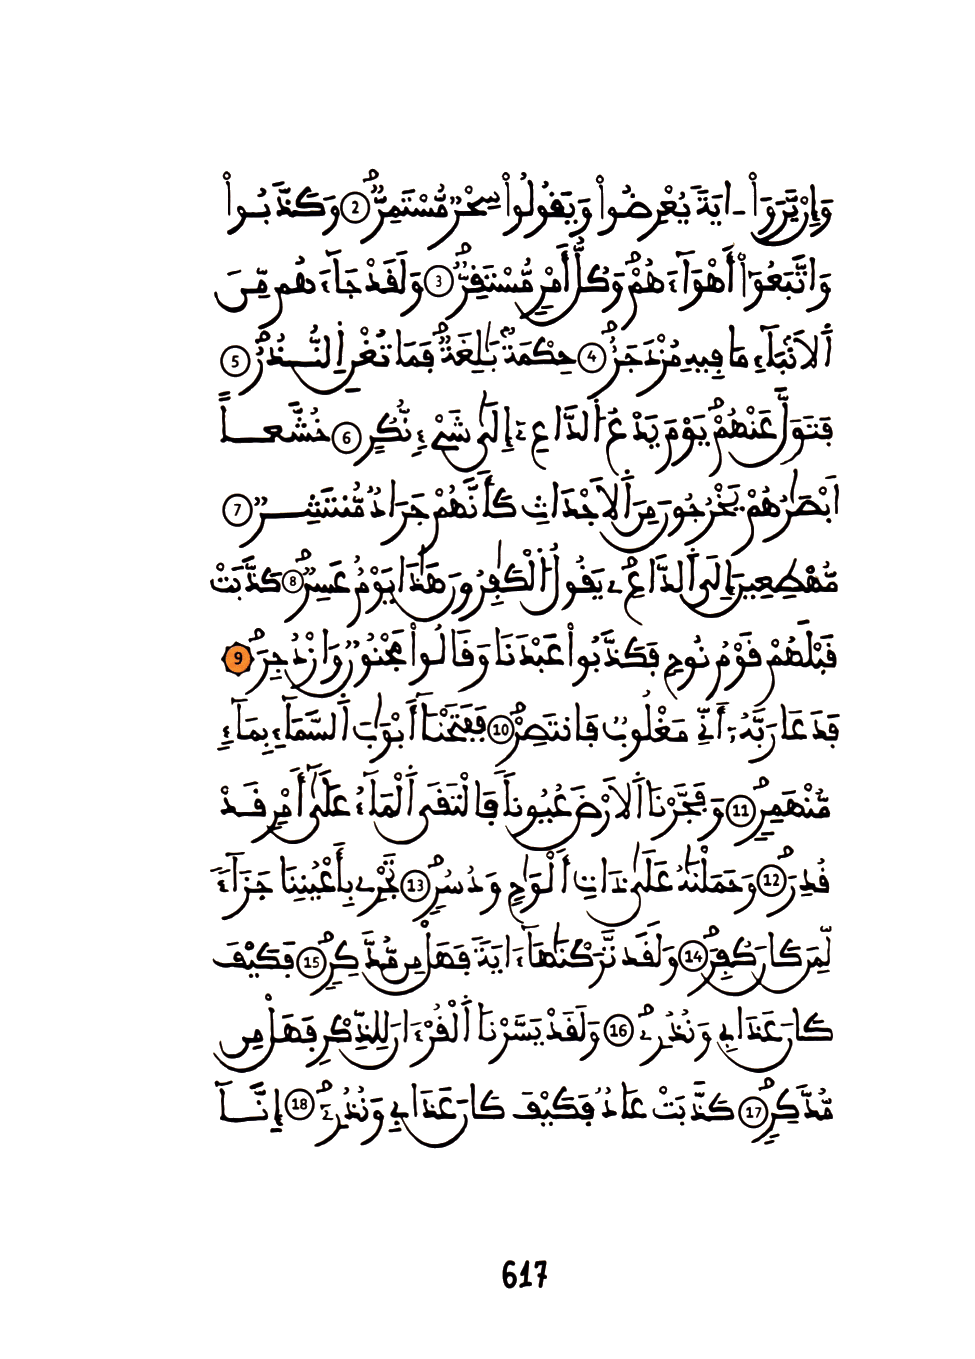 وَإِنْ يَّرَوَاْ ـ ايَةٗ يُعْرِضُواْ وَيَقُولُواْ سِحْرٞ مُّسْتَمِرّٞۖ 2 وَكَذَّبُواْ
وَاتَّبَعُوٓاْ أَهْوَآءَهُمْۖ وَكُلُّ أَمْرٖ مُّسْتَقِرّٞۖ 3 وَلَقَدْ جَآءَهُم مِّنَ
اَ۬لَانۢبَآءِ مَا فِيهِ مُزْدَجَرٌۖ 4 حِكْمَةُۢ بَٰلِغَةٞۖ فَمَا تُغْنِ اِ۬لنُّذُرُۖ 5
فَتَوَلَّ عَنْهُمْۖ يَوْمَ يَدْعُ اُ۬لدَّاعِۦٓ إِلَىٰ شَےْءٖ نُّكُرٍ 6 خُشَّعاً
اَبْصَٰرُهُمْ يَخْرُجُونَ مِنَ اَ۬لَاجْدَاثِ كَأَنَّهُمْ جَرَادٞ مُّنتَشِرٞ 7
مُّهْطِعِينَ إِلَى اَ۬لدَّاعِۦ يَقُولُ اُ۬لْكَٰفِرُونَ هَٰذَا يَوْمٌ عَسِرٞۖ 8 كَذَّبَتْ
قَبْلَهُمْ قَوْمُ نُوحٖ فَكَذَّبُواْ عَبْدَنَا وَقَالُواْ مَجْنُونٞ وَازْدُجِرَۖ 9
فَدَعَا رَبَّهُۥٓ أَنِّے مَغْلُوبٞ فَانتَصِرْۖ 10 فَفَتَحْنَآ أَبْوَٰبَ اَ۬لسَّمَآءِ بِمَآءٖ
مُّنْهَمِرٖ 11 وَفَجَّرْنَا اَ۬لَارْضَ عُيُوناٗ فَالْتَقَى اَ۬لْمَآءُ عَلَىٰٓ أَمْرٖ قَدْ
قُدِرَۖ 12 وَحَمَلْنَٰهُ عَلَىٰ ذَاتِ أَلْوَٰحٖ وَدُسُرٖۖ 13 تَجْرِے بِأَعْيُنِنَا جَزَآءٗ
لِّمَن كَانَ كُفِرَۖ 14 وَلَقَد تَّرَكْنَٰهَآ ءَايَةٗ فَهَلْ مِن مُّدَّكِرٖۖ 15 فَكَيْفَ
كَانَ عَذَابِے وَنُذُرِۦۖ 16 وَلَقَدْ يَسَّرْنَا اَ۬لْقُرْءَانَ لِلذِّكْرِ فَهَلْ مِن
مُّدَّكِرٖۖ 17 كَذَّبَتْ عَادٞ فَكَيْفَ كَانَ عَذَابِے وَنُذُرِۦٓۖ 18 إِنَّآ
617